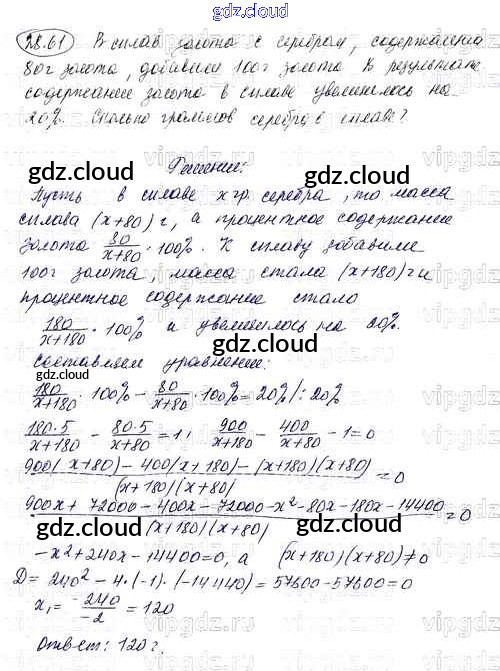 gdz.cloud
28.61 В сплав золота с серебром, содержащий
80г золота, добавили 100г золота. В результате
содержание золота в сплаве увеличилось на
20%. Сколько граммов серебра в сплаве?
gdz.cloud gdz.cloud
Решение:
Пусть в сплаве x гр. серебра, то масса
сплава (x+80) г, а процентное содержание
золота 80/(x+80) · 100%. К сплаву добавили
100г золота, масса стала (x+180) г и
процентное содержание стало
180/(x+180) · 100% и увеличилось на 20%.
gdz.cloud gdz.cloud
Составляем уравнение:
180/(x+180) · 100% - 80/(x+80) · 100% = 20% |: 20%
gdz.cloud gdz.cloud
180·5/(x+180) - 80·5/(x+80) = 1; 900/(x+180) - 400/(x+80) - 1 = 0
(900(x+80) - 400(x+180) - (x+180)(x+80))/((x+180)(x+80)) = 0
(900x + 72000 - 400x - 72000 - x² - 80x - 180x - 14400)/((x+180)(x+80)) = 0
gdz.cloud gdz.cloud
-x² + 240x - 14400 = 0, а (x+180)(x+80) ≠ 0
D = 240² - 4·(-1)·(-14400) = 57600 - 57600 = 0
x₁ = -240/-2 = 120
Ответ: 120 г.
gdz.cloud